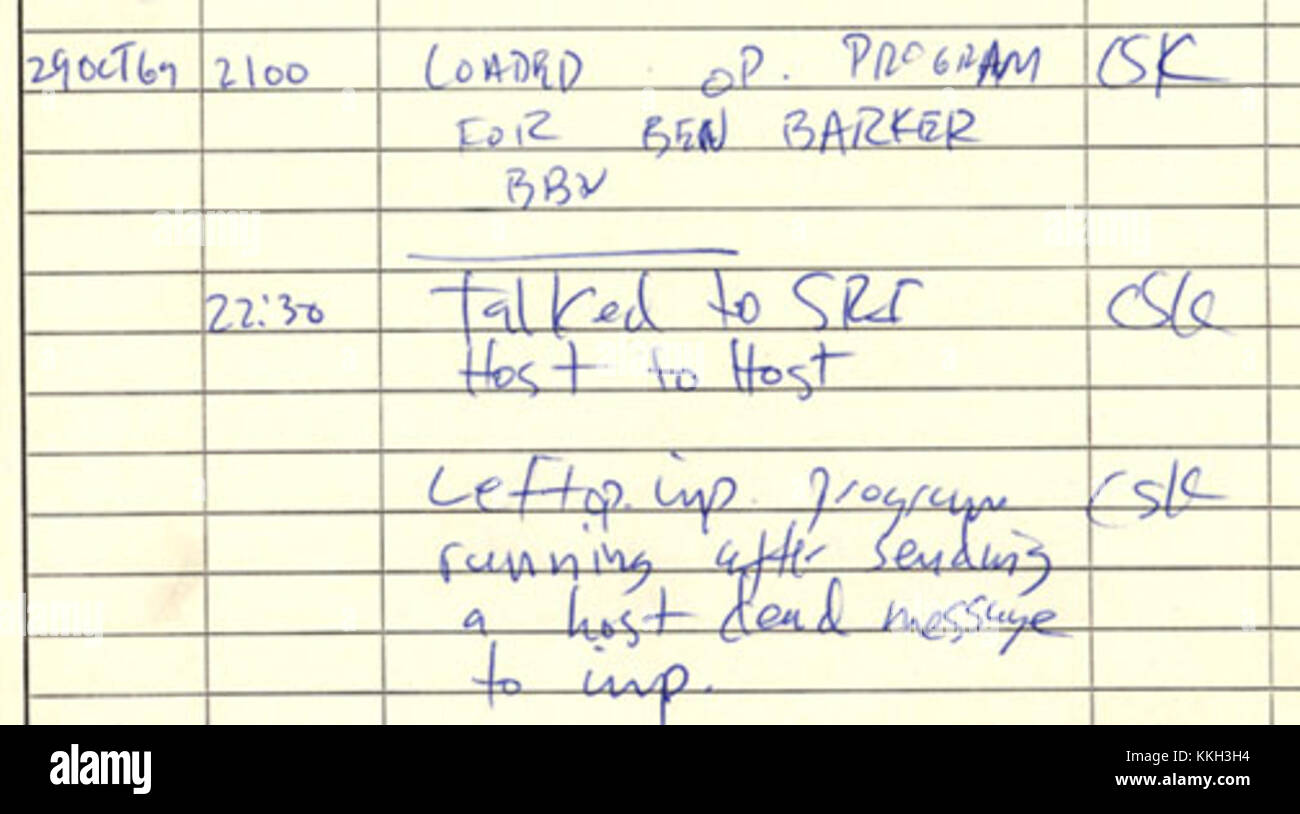 29 OCT 69 2100 LOADED OP. PROGRAM CSK
FOR BEN BARKER
BBN
22:30 Talked to SRI CSK
Host to Host
Left op. imp. program CSK
running after sending
a host dead message
to imp.
alamy
Image ID: KKH3H4
www.alamy.com